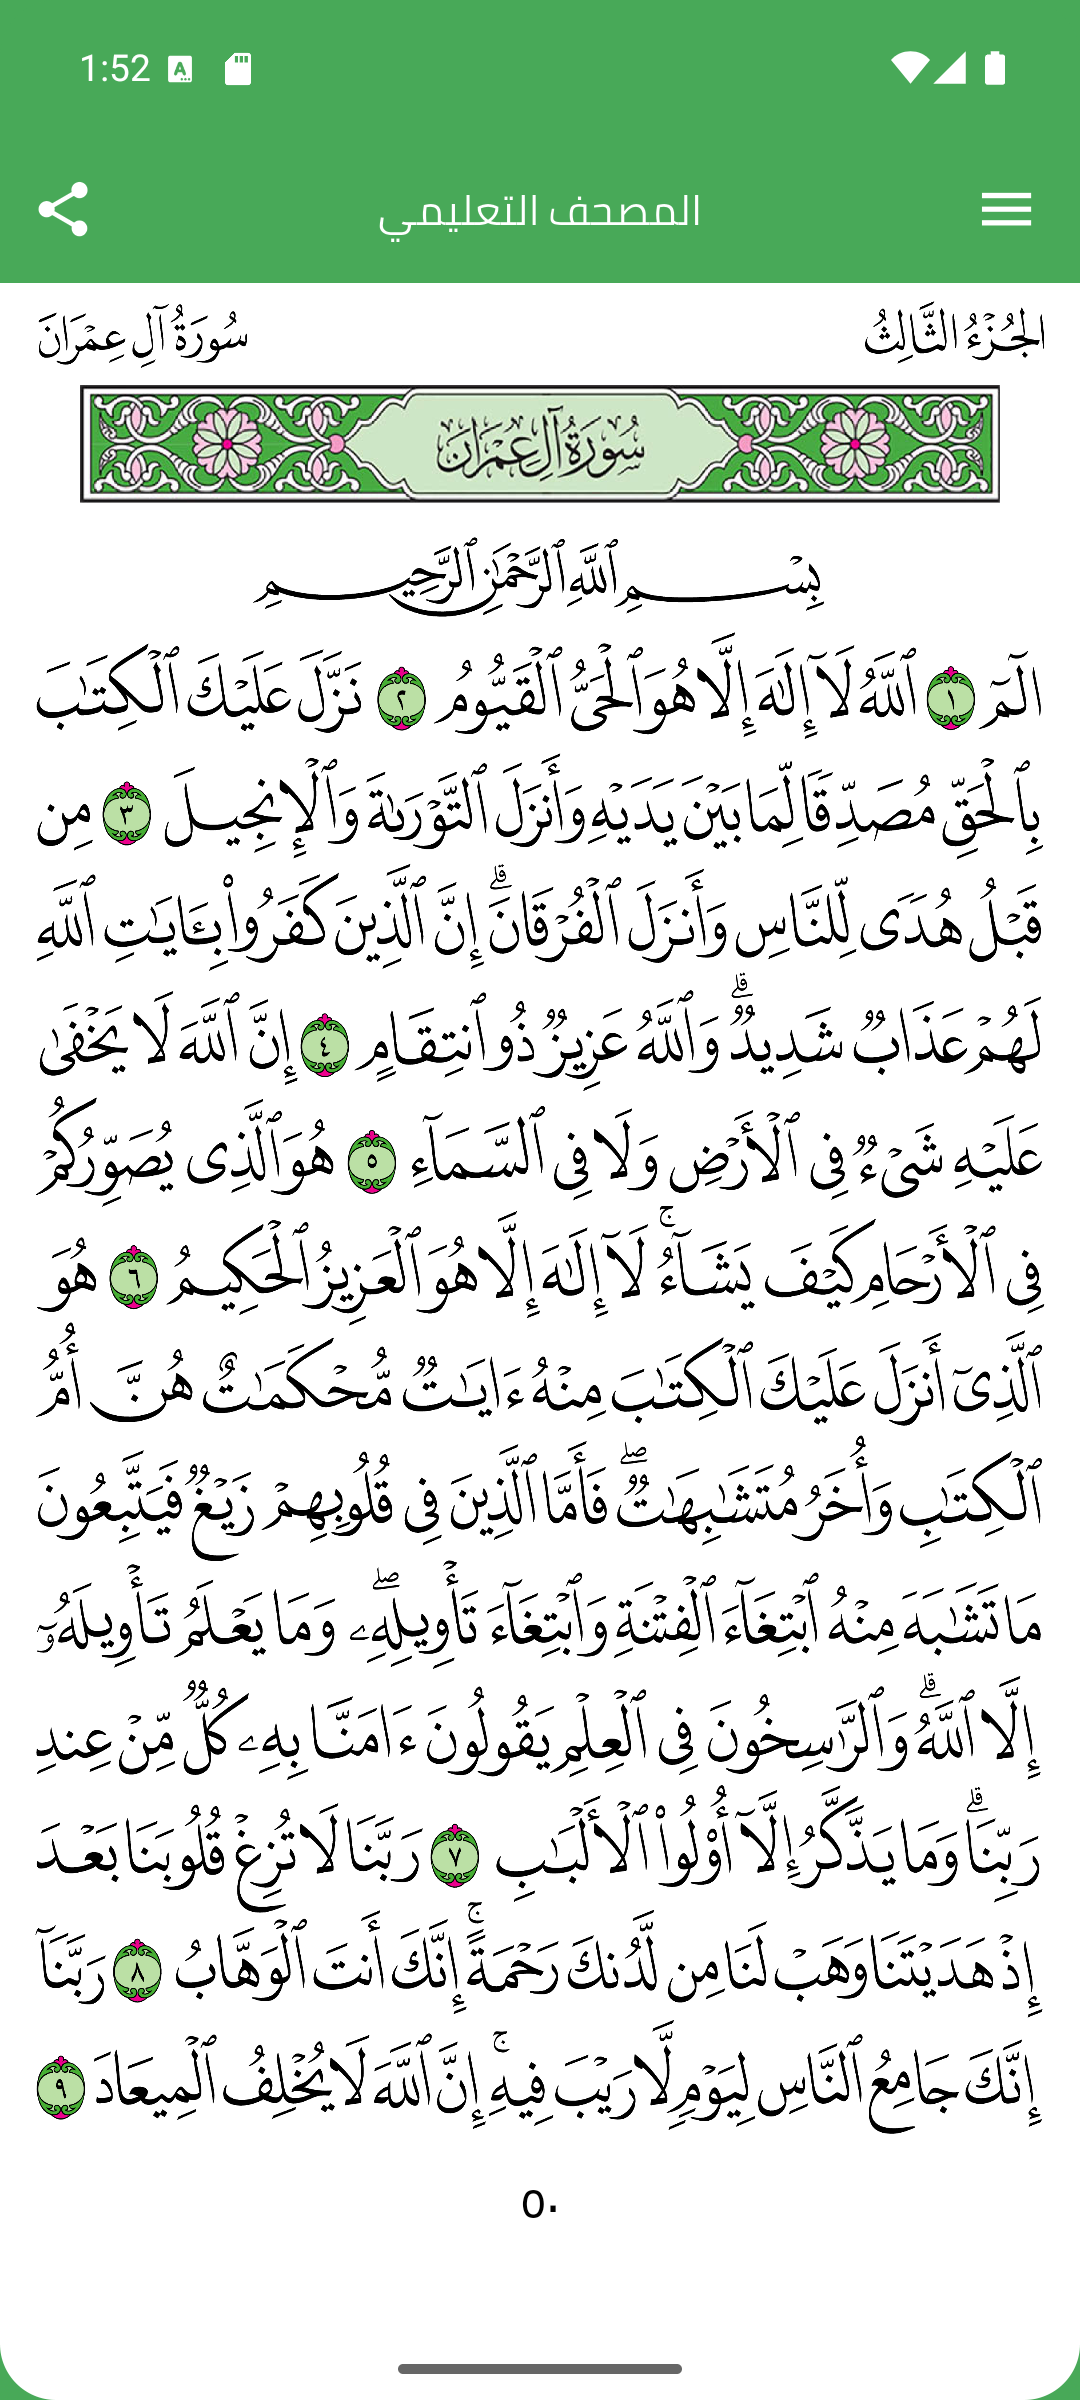 1:52
المصحف التعليمي
الجُزْءُ الثَّالِثُ
سُورَةُ آلِ عِمْرَانَ
سُورَةُ آلِ عِمْرَانَ
بِسْمِ ٱللَّهِ ٱلرَّحْمَٰنِ ٱلرَّحِيمِ
الٓمٓ ١ ٱللَّهُ لَآ إِلَٰهَ إِلَّا هُوَ ٱلْحَىُّ ٱلْقَيُّومُ ٢ نَزَّلَ عَلَيْكَ ٱلْكِتَٰبَ
بِٱلْحَقِّ مُصَدِّقًا لِّمَا بَيْنَ يَدَيْهِ وَأَنزَلَ ٱلتَّوْرَىٰةَ وَٱلْإِنجِيلَ ٣ مِن
قَبْلُ هُدًى لِّلنَّاسِ وَأَنزَلَ ٱلْفُرْقَانَ ۗ إِنَّ ٱلَّذِينَ كَفَرُوا۟ بِـَٔايَٰتِ ٱللَّهِ
لَهُمْ عَذَابٌ شَدِيدٌ ۗ وَٱللَّهُ عَزِيزٌ ذُو ٱنتِقَامٍ ٤ إِنَّ ٱللَّهَ لَا يَخْفَىٰ
عَلَيْهِ شَىْءٌ فِى ٱلْأَرْضِ وَلَا فِى ٱلسَّمَآءِ ٥ هُوَ ٱلَّذِى يُصَوِّرُكُمْ
فِى ٱلْأَرْحَامِ كَيْفَ يَشَآءُ ۚ لَآ إِلَٰهَ إِلَّا هُوَ ٱلْعَزِيزُ ٱلْحَكِيمُ ٦ هُوَ
ٱلَّذِىٓ أَنزَلَ عَلَيْكَ ٱلْكِتَٰبَ مِنْهُ ءَايَٰتٌ مُّحْكَمَٰتٌ هُنَّ أُمُّ
ٱلْكِتَٰبِ وَأُخَرُ مُتَشَٰبِهَٰتٌ ۖ فَأَمَّا ٱلَّذِينَ فِى قُلُوبِهِمْ زَيْغٌ فَيَتَّبِعُونَ
مَا تَشَٰبَهَ مِنْهُ ٱبْتِغَآءَ ٱلْفِتْنَةِ وَٱبْتِغَآءَ تَأْوِيلِهِۦ ۖ وَمَا يَعْلَمُ تَأْوِيلَهُۥٓ
إِلَّا ٱللَّهُ ۗ وَٱلرَّٰسِخُونَ فِى ٱلْعِلْمِ يَقُولُونَ ءَامَنَّا بِهِۦ كُلٌّ مِّنْ عِندِ
رَبِّنَا ۗ وَمَا يَذَّكَّرُ إِلَّآ أُو۟لُوا۟ ٱلْأَلْبَٰبِ ٧ رَبَّنَا لَا تُزِغْ قُلُوبَنَا بَعْدَ
إِذْ هَدَيْتَنَا وَهَبْ لَنَا مِن لَّدُنكَ رَحْمَةً ۚ إِنَّكَ أَنتَ ٱلْوَهَّابُ ٨ رَبَّنَآ
إِنَّكَ جَامِعُ ٱلنَّاسِ لِيَوْمٍ لَّا رَيْبَ فِيهِ ۚ إِنَّ ٱللَّهَ لَا يُخْلِفُ ٱلْمِيعَادَ ٩
٥٠